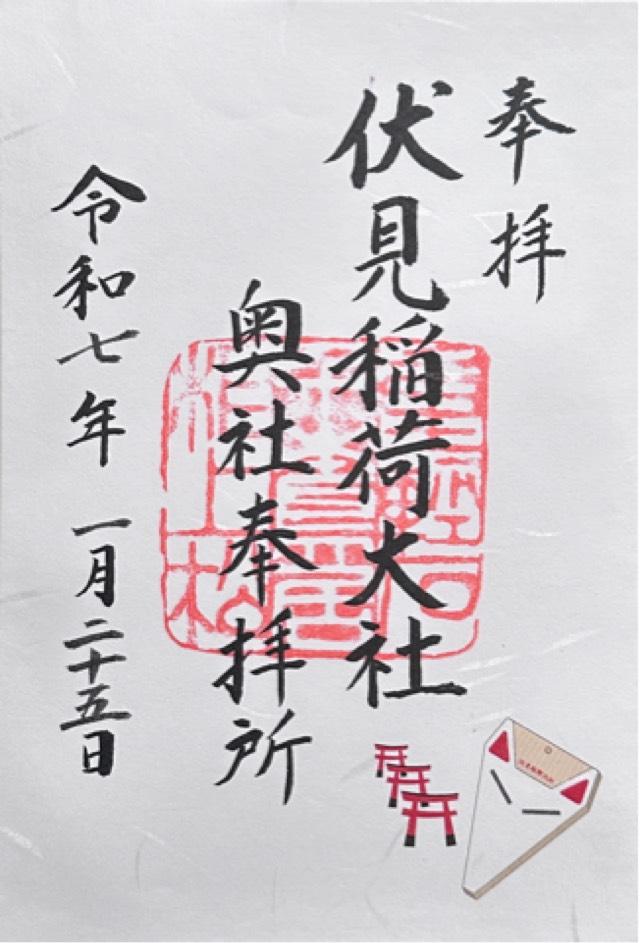 奉拝
伏見稲荷大社
奥社奉拝所
令和七年 一月二十五日